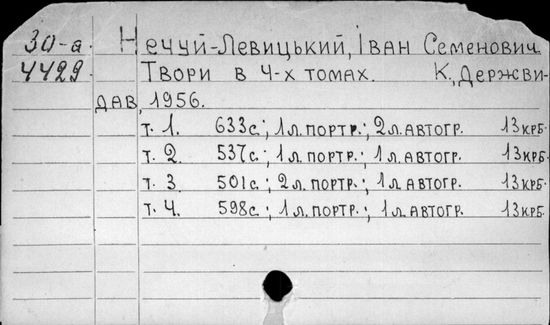 30-а. Нечуй-Левицький, Іван Семенович.
4429. Твори в 4-х томах. К, Держви-
дав, 1956.
т. 1. 633с.; 1л.портр.; 2л.автогр. 13крб.
т. 2. 537с.; 1л.портр.; 1л.автогр. 13крб.
т. 3. 501с.; 2л.портр.; 1л.автогр. 13крб.
т. 4. 598с.; 1л.портр.; 1л.автогр. 13крб.